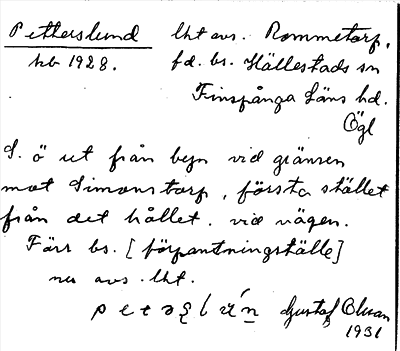 Petterslund lht avs. Rommetorp,
hb 1928. fd. bs. Hällestads sn
Finspånga Läns hd.
Ögl
S. ö ut från byn vid gränsen
mot Simonstorp, första stället
från det hållet. vid vägen.
Förr bs. [förpantningställe]
nu avs. lht.
Gustaf Olsson
1931